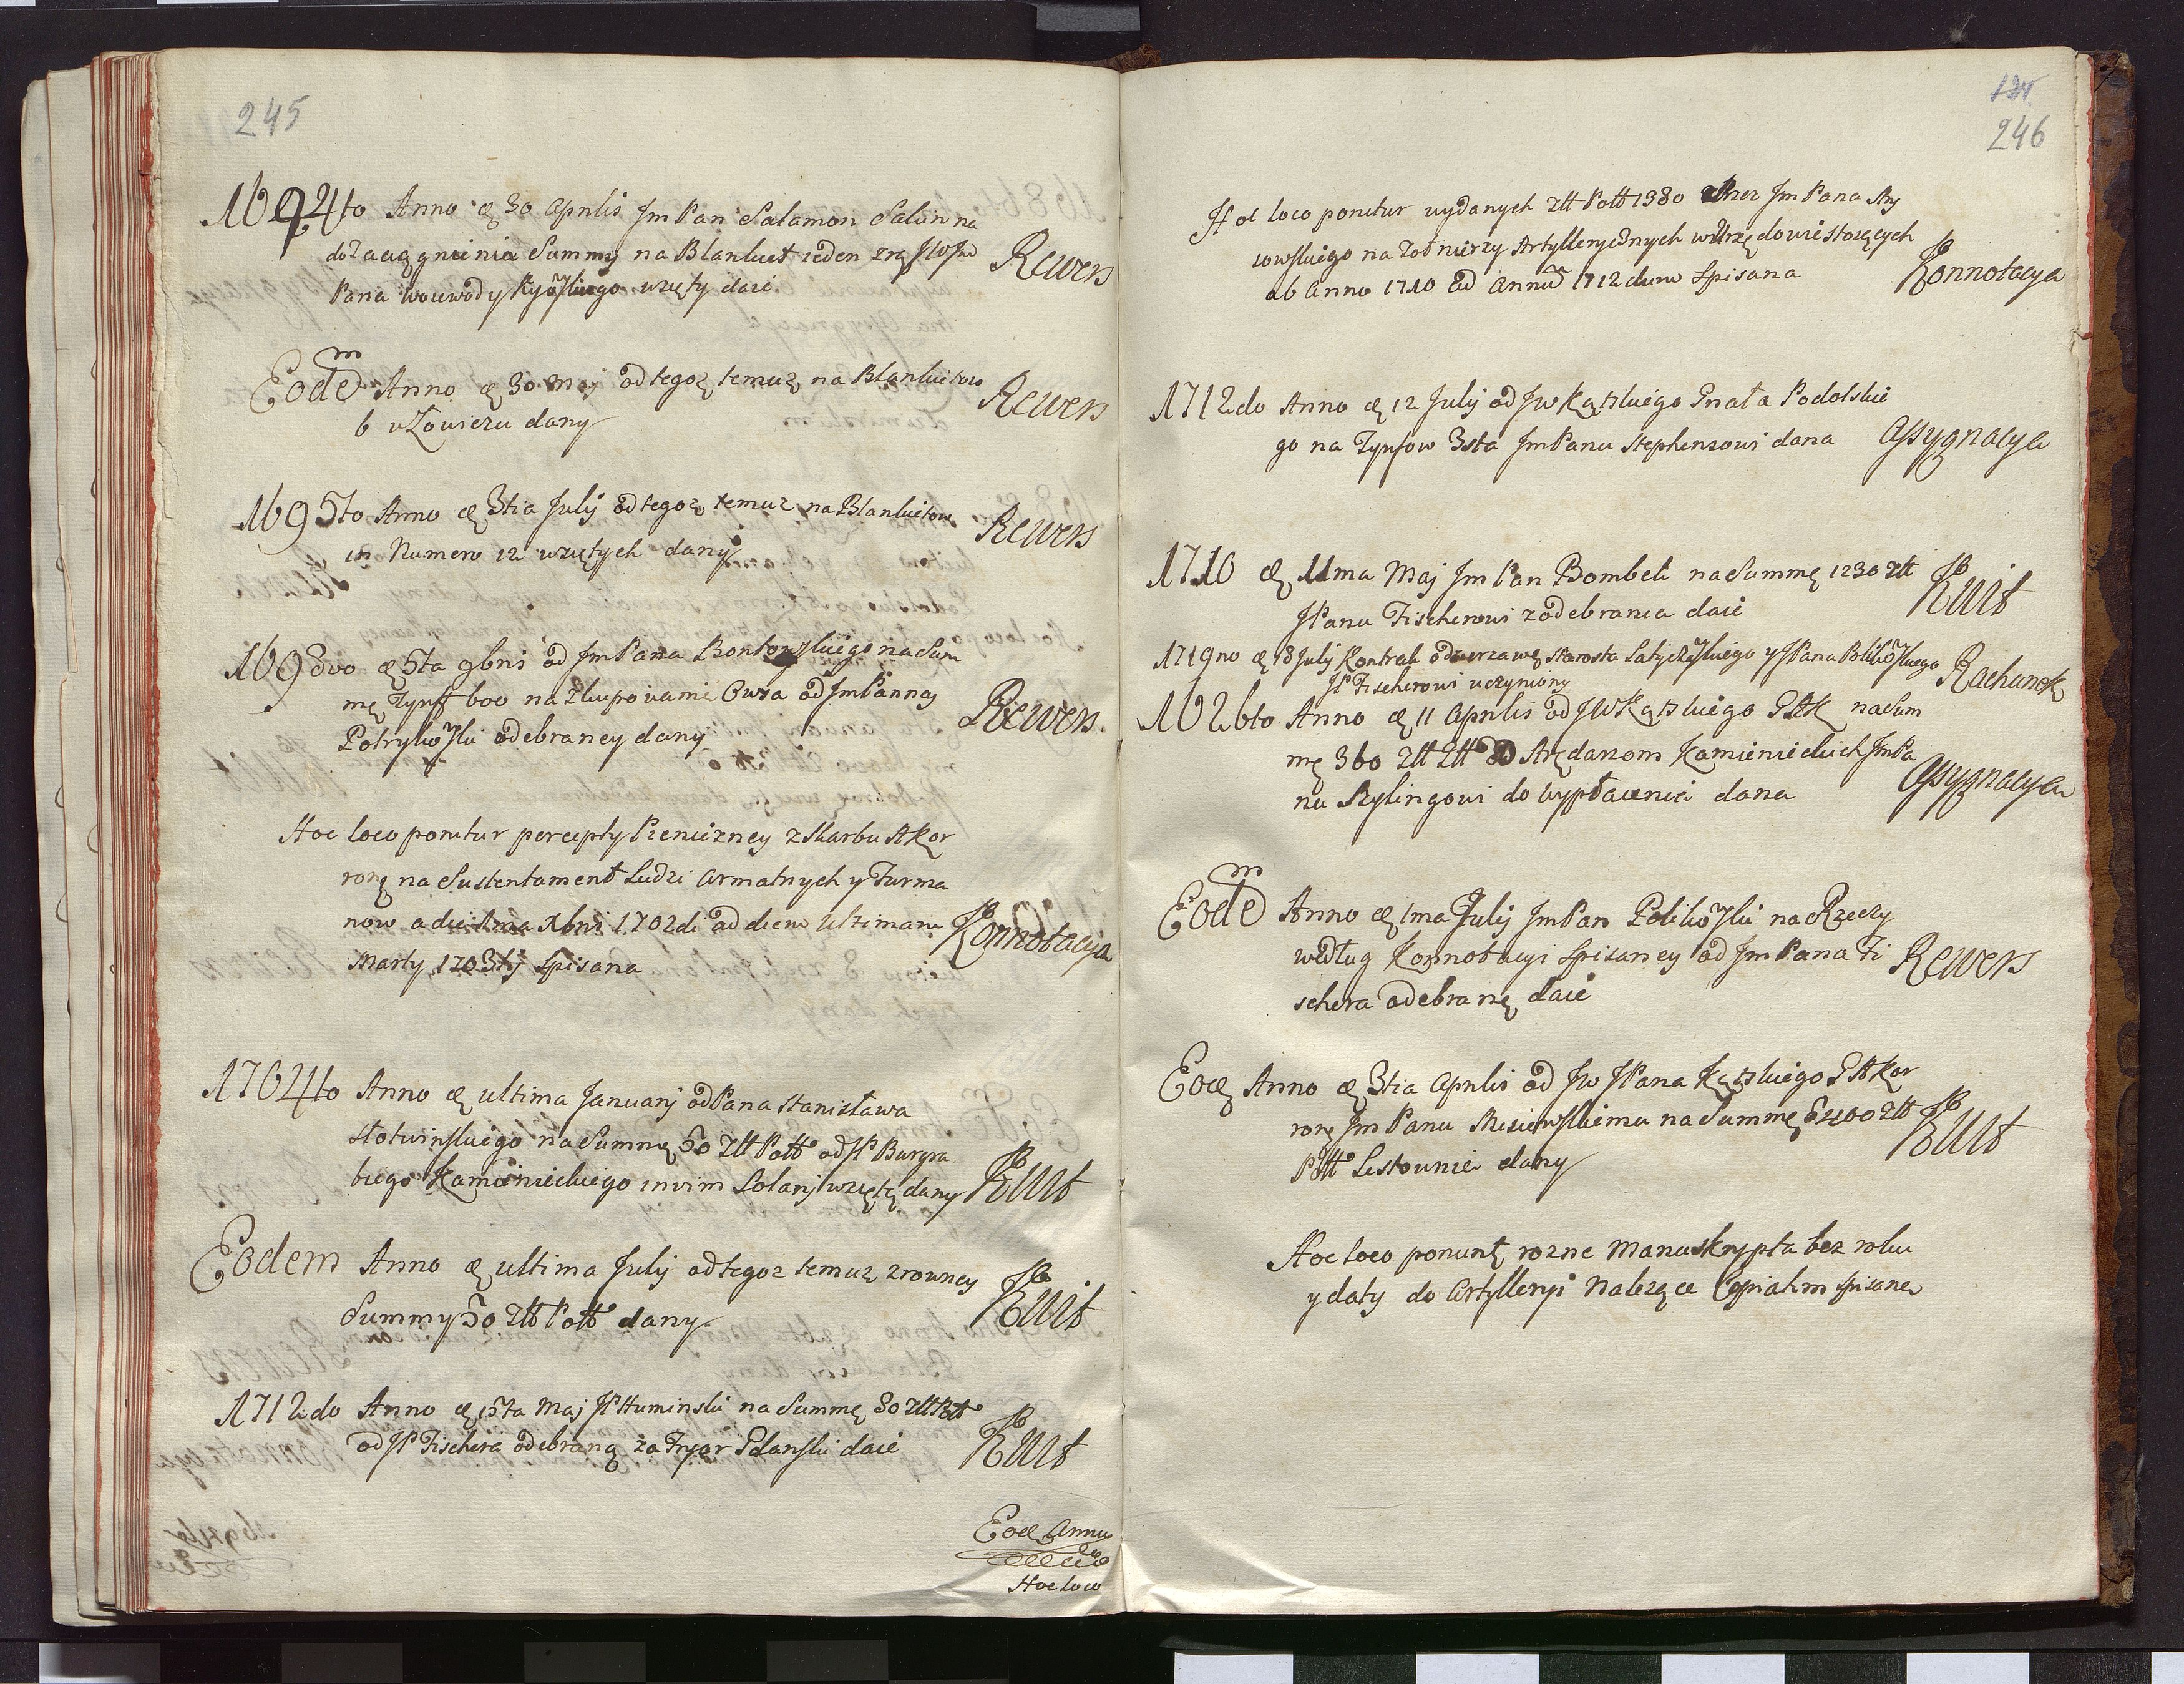 245
1694to Anno  30 Aprilis Jm Pan Salamon Salwin na
do zaciągnienia Summy na Blankiet ieden
Pana Woiewody Kyowskiego wzięty daie. Rewers
Eodem Anno  30 Maj od tegoz temuz na Blankietow
6 w Łowiczu dany Rewers
1695to Anno  3tia Julij od tegoz temuz na Blankietow
in Numero 12 wziętych dany Rewers
1698vo  5ta 9bris od Jm Pana Bontowskiego na Sum
mę Tynff 600 na zkupowanie Owsa od Jm Panney
Potrykowski odebraney dany Rewers.
Hoc loco ponitur percepty Pieniężney z Skarbu Kor
ronę na Sustentament Ludzi Armatnych y Furma
now a die 1ma Xbris 1702di ad diem Ultimam
Marty 1703tij Spisana Konnotacya
1704to Anno  ultima Januarij od Pana Stanisława
Słotwinskiego na Summę 50 Złł Poll od JP Burgra
biego Kamienieckiego in vim Solarij wziętą dany Kwit
Eodem Anno  ultima Julij od tegoz temuz z rowney
Summy 50 Złł Poll dany Kwit
1712do Anno  15ta Maj JP Huminski na Summę 80 Złł Poll
od JP Fischera odebraną za Gdanski daie Kwit
Eod Anno
Hoc loco
246
Hoc loco ponitur wydanych Złł Poll 1380 Przez Jm Pana Ry
kowskiego na Zołnierzy Artyllerycznych w Brzędowie stoiących
ab Anno 1710 ad Annum 1712dum Spisana Konnotacya
1712do Anno  12 Julij od Jw Kątskiego Gnała Podolskie
go na Tynfow 3sta Jm Panu Stephensowi dana Assygnacya
1710  11ma Maj Jm Pan Bombek na Summę 1230 Złł
JPanu Fischerowi z odebrania daie Kwit
1719no  18 Julij Kontrak o dzierzawę Starosta Latyczewskiego y JPana Polikowskiego
JP Fischerowi uczyniony Rachunek
1626to Anno  11 Aprilis od JW Kątskiego na Sum
mę 360 Złł Złł od Arędarzom Kamienieckich Jm Pa
nu Rylingowi do wypłacenia dana Assygnacya
Eodem Anno  1ma Julij Jm Pan Polikowski na Rzeczy
według Konnotacyi Spisaney od Jm Pana Fi
schera odebranę daie Rewers
Eod Anno  3tia Aprilis od Jw JPana Kątskiego Kor
ronę Jm Panu na Summę 5400 Złł
Poll Listownie dany Kwit
Hoc loco ponunt rozne Manuskrypta bez roku
y daty do Artylleryi Nalezące Copiatim spisane